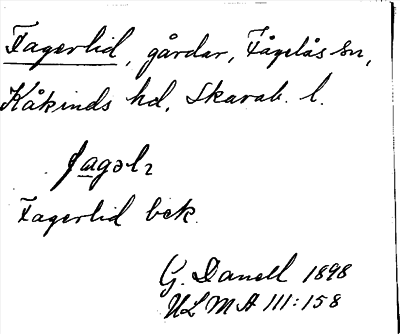 Fagerlid, gårdar, Fågelås sn,
Kåkinds hd, Skarab. l.
fagəl2
Fagerlid bek.
G. Danell 1898
ULMA 111:158